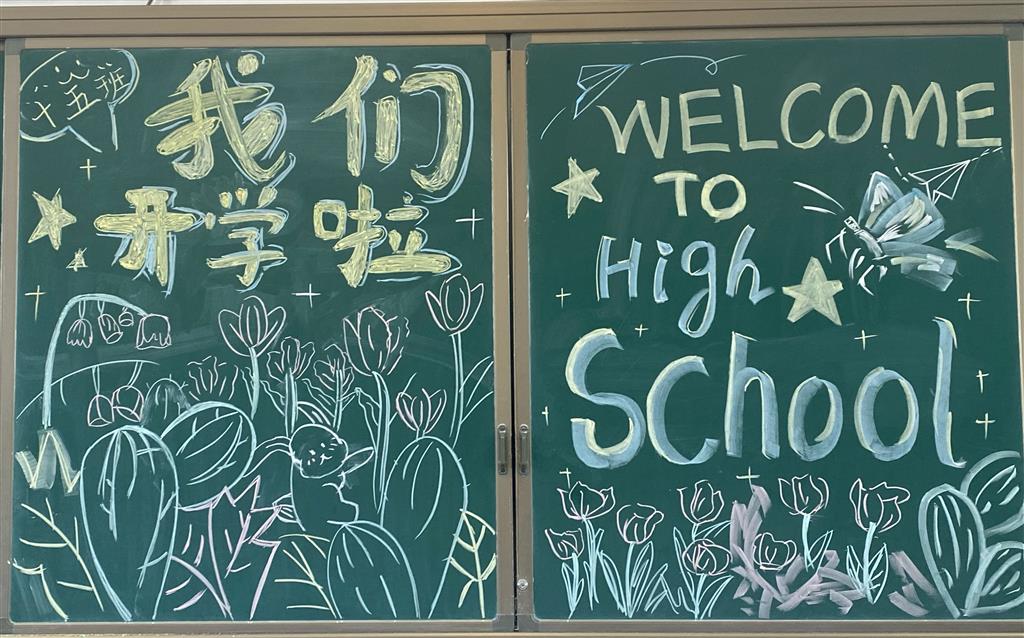 十五班
我们
开学啦
WELCOME
TO
High
School